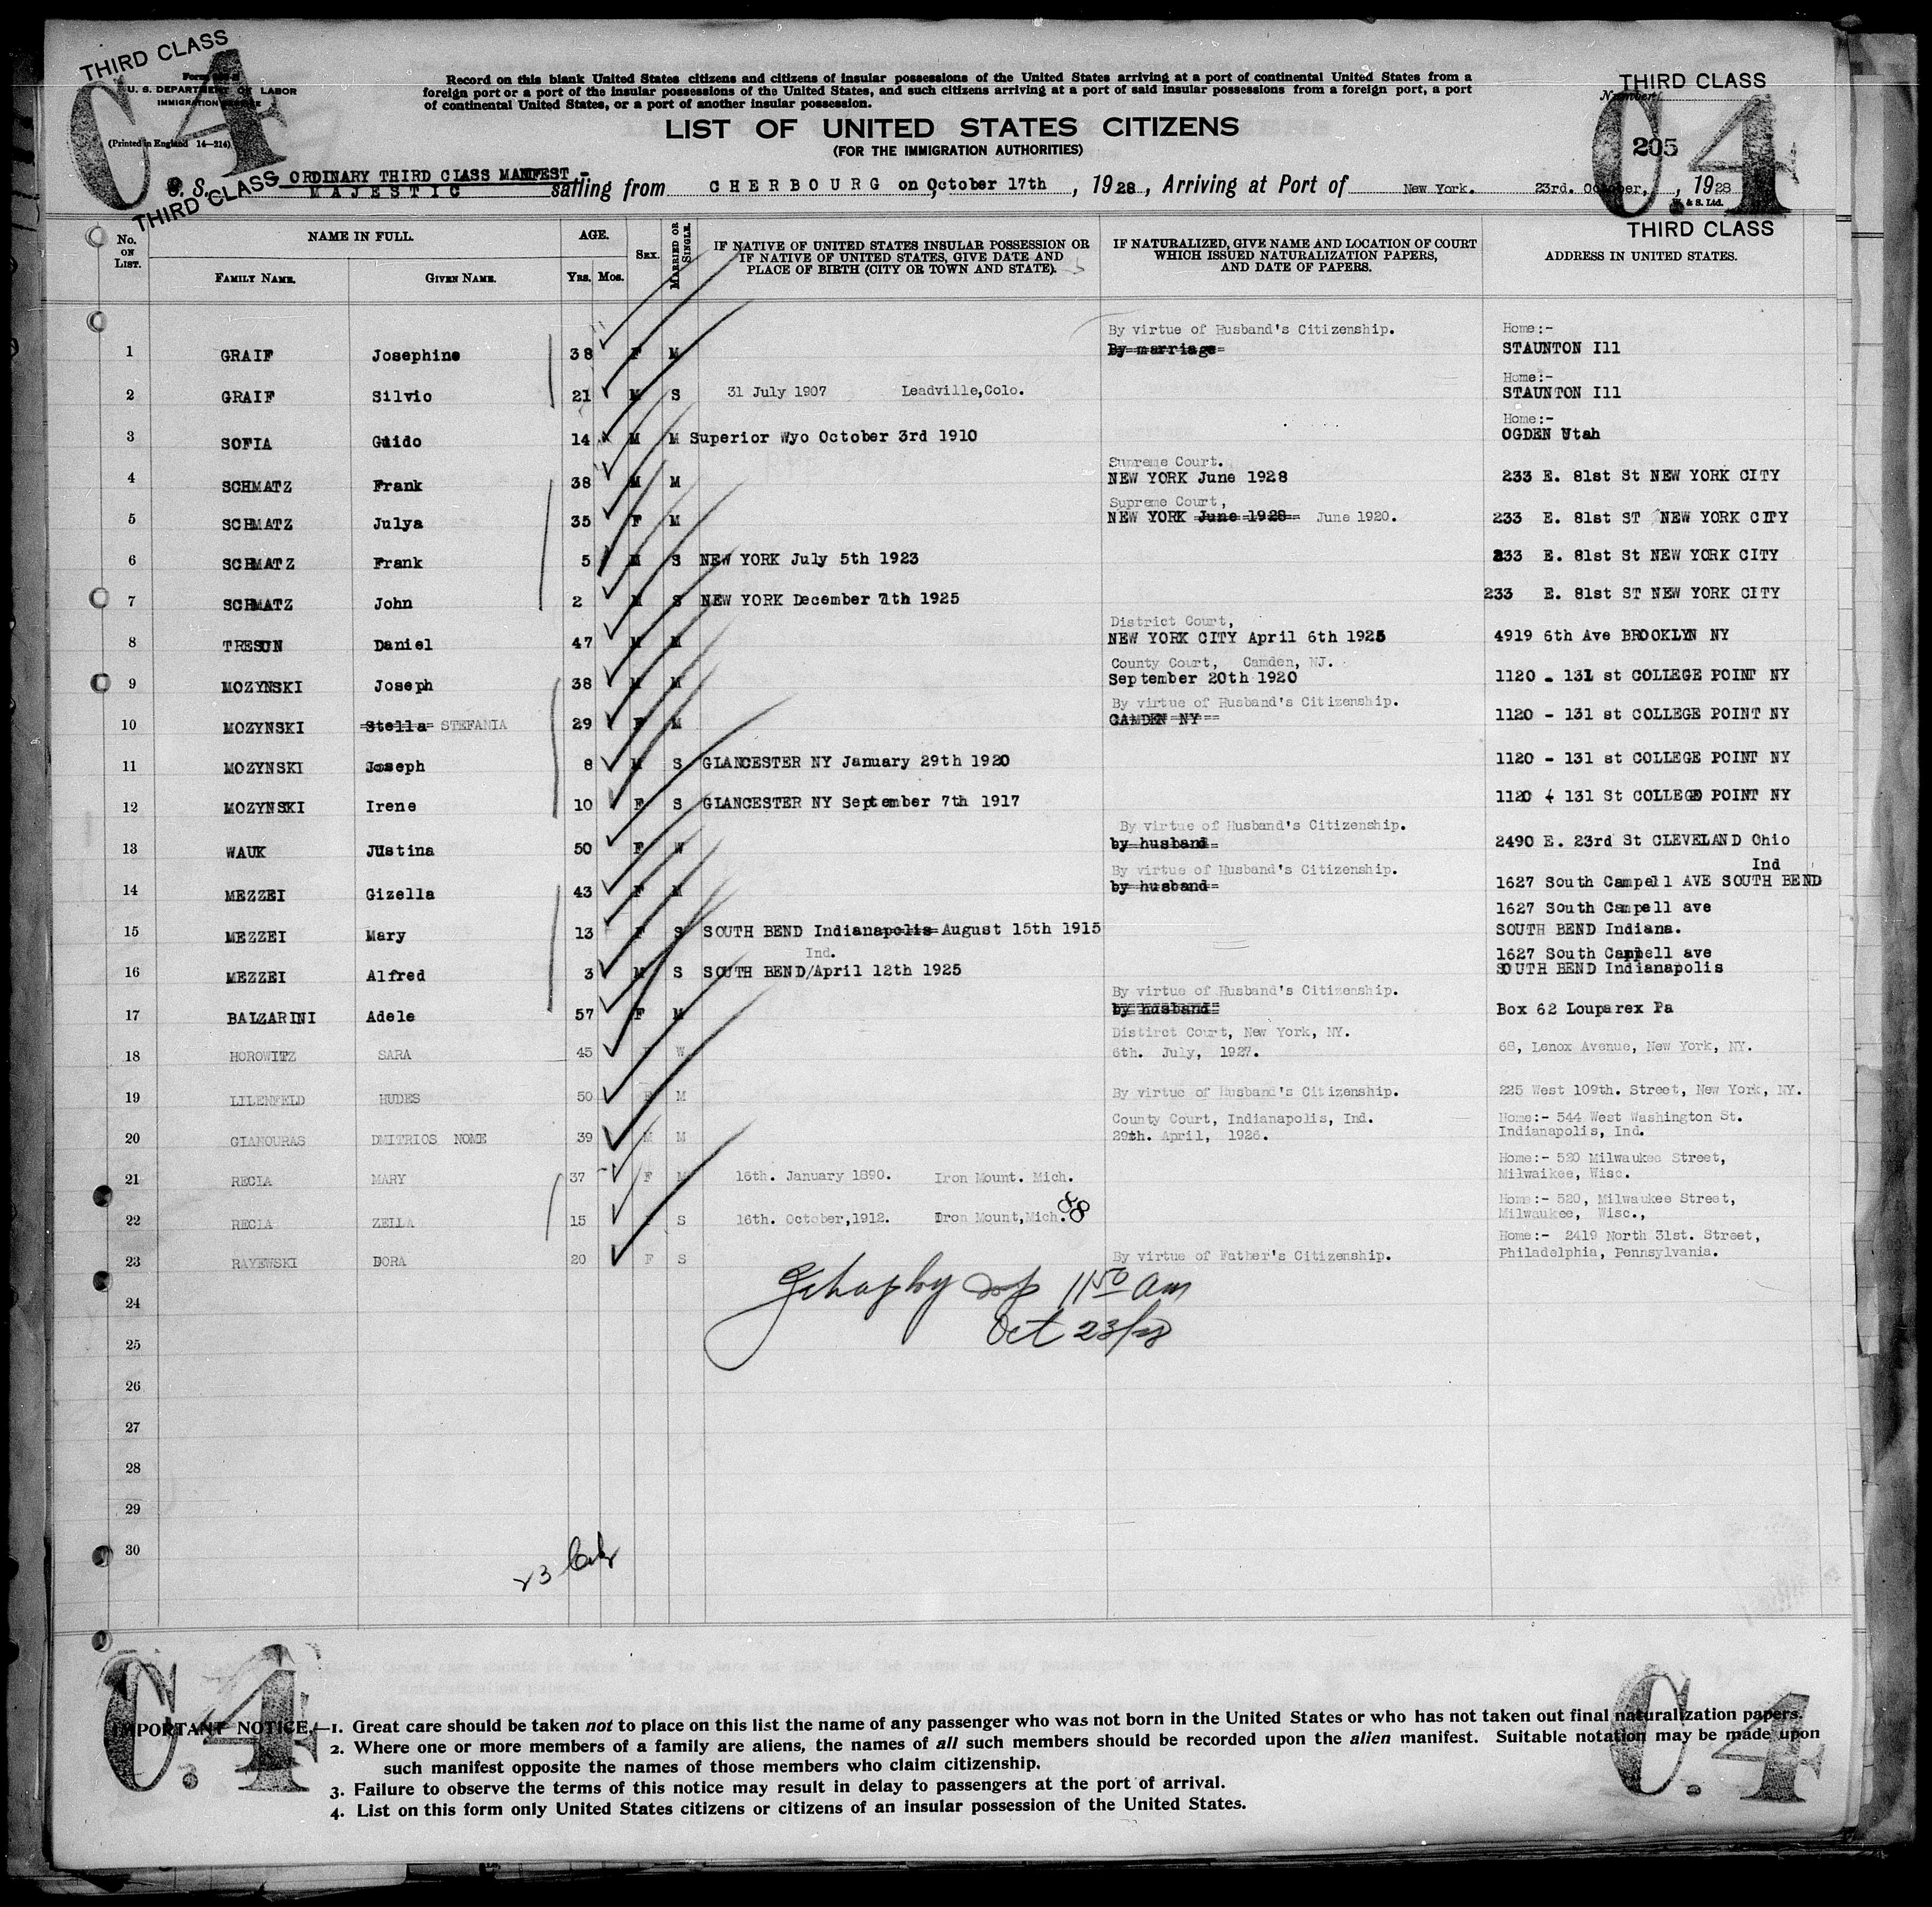 THIRD CLASS
C.4
U. S. DEPARTMENT OF LABOR
IMMIGRATION SERVICE
(Printed in England 14—214)
Record on this blank United States citizens and citizens of insular possessions of the United States arriving at a port of continental United States from a
foreign port or a port of the insular possessions of the United States, and such citizens arriving at a port of said insular possessions from a foreign port, a port
of continental United States, or a port of another insular possession.
THIRD CLASS
Number
C.4
205
LIST OF UNITED STATES CITIZENS
(FOR THE IMMIGRATION AUTHORITIES)
ORDINARY THIRD CLASS MANIFEST -
S. S. MAJESTIC sailing from CHERBOURG on October 17th, 1928, Arriving at Port of New York. 23rd. October, , 1928
W. & S. Ltd.
THIRD CLASS
THIRD CLASS
No. ON LIST. NAME IN FULL. AGE. SEX. MARRIED OR SINGLE. IF NATIVE OF UNITED STATES INSULAR POSSESSION OR IF NATIVE OF UNITED STATES, GIVE DATE AND PLACE OF BIRTH (CITY OR TOWN AND STATE). IF NATURALIZED, GIVE NAME AND LOCATION OF COURT WHICH ISSUED NATURALIZATION PAPERS, AND DATE OF PAPERS. ADDRESS IN UNITED STATES.
FAMILY NAME. GIVEN NAME. Yrs. Mos.
By virtue of Husband's Citizenship. Home:-
1 GRAIF Josephine 38 F M By marriage STAUNTON Ill
Home:-
2 GRAIF Silvio 21 M S 31 July 1907 Leadville,Colo. STAUNTON Ill
Home:-
3 SOFIA Guido 14 M M Superior Wyo October 3rd 1910 OGDEN Utah
Supreme Court.
4 SCHMATZ Frank 38 M M NEW YORK June 1928 233 E. 81st St NEW YORK CITY
Supreme Court,
5 SCHMATZ Julya 35 F M NEW YORK June 1928 June 1920. 233 E. 81st ST NEW YORK CITY
6 SCHMATZ Frank 5 M S NEW YORK July 5th 1923 233 E. 81st St NEW YORK CITY
7 SCHMATZ John 2 M S NEW YORK December 7th 1925 233 E. 81st ST NEW YORK CITY
District Court,
8 TRESUN Daniel 47 M M NEW YORK CITY April 6th 1925 4919 6th Ave BROOKLYN NY
County Court, Camden, NJ.
9 MOZYNSKI Joseph 38 M M September 20th 1920 1120 - 131 st COLLEGE POINT NY
By virtue of Husband's Citizenship.
10 MOZYNSKI Stella STEFANIA 29 F M CAMDEN NY 1120 - 131 st COLLEGE POINT NY
11 MOZYNSKI Joseph 8 M S GLANCESTER NY January 29th 1920 1120 - 131 st COLLEGE POINT NY
12 MOZYNSKI Irene 10 F S GLANCESTER NY September 7th 1917 1120 - 131 St COLLEGE POINT NY
By virtue of Husband's Citizenship.
13 WAUK Justina 50 F W by husband 2490 E. 23rd St CLEVELAND Ohio
By virtue of Husband's Citizenship. Ind
14 MEZZEI Gizella 43 F M by husband 1627 South Campell AVE SOUTH BEND
1627 South Campell ave
15 MEZZEI Mary 13 F S SOUTH BEND Indianapolis August 15th 1915 SOUTH BEND Indiana.
Ind. 1627 South Campell ave
16 MEZZEI Alfred 3 M S SOUTH BEND/April 12th 1925 SOUTH BEND Indianapolis
By virtue of Husband's Citizenship.
17 BALZARINI Adele 57 F M by husband Box 62 Louparex Pa
Distirct Court, New York, NY.
18 HOROWITZ SARA 45 F W 6th. July, 1927. 68, Lenox Avenue, New York, NY.
19 LILENFELD HUDES 50 F M By virtue of Husband's Citizenship. 225 West 109th. Street, New York, NY.
County Court, Indianapolis, Ind. Home:- 544 West Washington St.
20 GIANOURAS DMITRIOS NOME 39 M M 29th. April, 1926. Indianapolis, Ind.
Home:- 520 Milwaukee Street,
21 RECIA MARY 37 F M 16th. January 1890. Iron Mount. Mich. Milwaikee, Wisc.
Home:- 520, Milwaukee Street,
22 RECIA ZELLA 15 F S 16th. October,1912. Iron Mount,Mich. Milwaukee, Wisc.,
Home:- 2419 North 31st. Street,
23 RAYEWSKI DORA 20 F S By virtue of Father's Citizenship. Philadelphia, Pennsylvania.
24
11 50 am
Oct 23/28
25
26
27
28
29
30
23
C.4
C.4
IMPORTANT NOTICE.—1. Great care should be taken not to place on this list the name of any passenger who was not born in the United States or who has not taken out final naturalization papers.
2. Where one or more members of a family are aliens, the names of all such members should be recorded upon the alien manifest. Suitable notation may be made upon
such manifest opposite the names of those members who claim citizenship.
3. Failure to observe the terms of this notice may result in delay to passengers at the port of arrival.
4. List on this form only United States citizens or citizens of an insular possession of the United States.